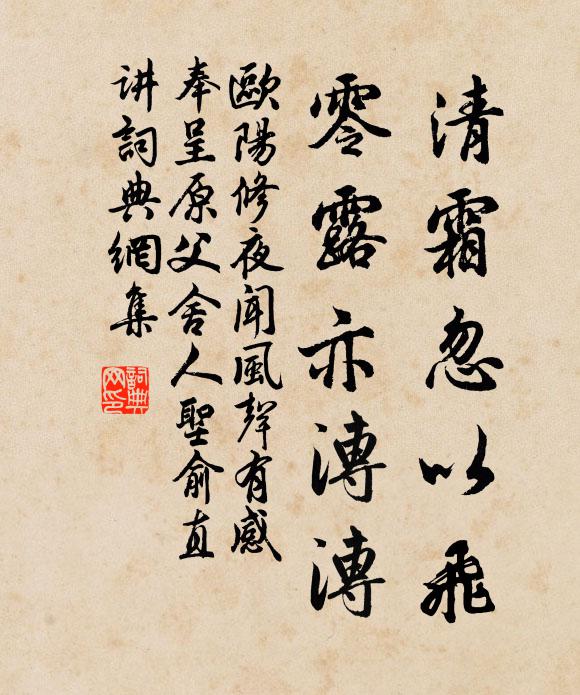 清霜忽以飛
零露亦溥溥
歐陽修夜聞風聲有感
奉呈原父舍人聖俞直
讲詞典網集
詞典
网印